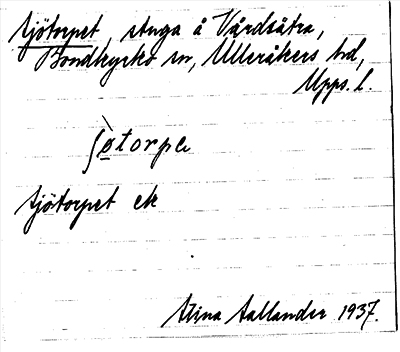 Sjötorpet, stuga å Vårdsätra,
Bondkyrko sn, Ulleråkers hd,
Upps. l.
ʃø̀torpe
Sjötorpet ek
Stina Sallander 1937.